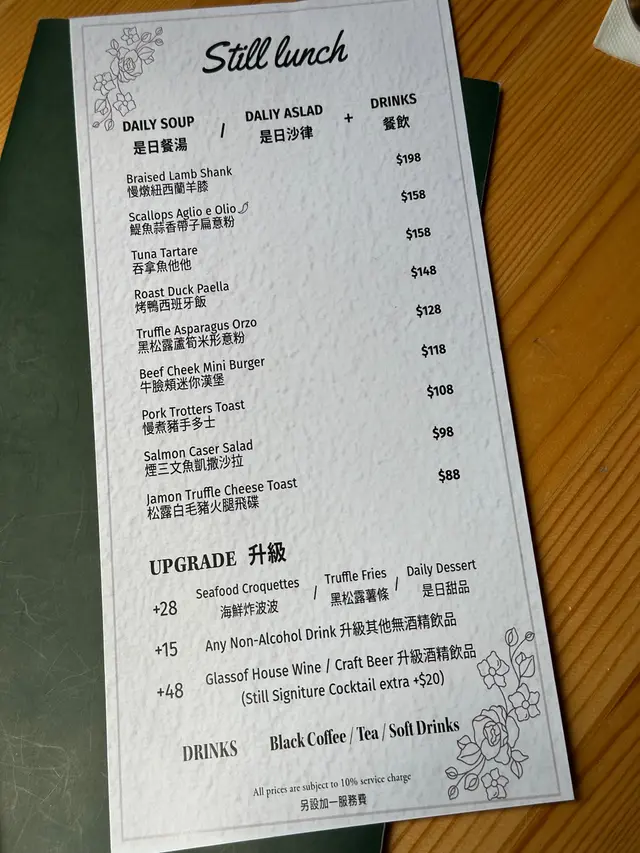 Still lunch
DAILY SOUP / DALIY ASLAD + DRINKS
是日餐湯 是日沙律 餐飲
Braised Lamb Shank $198
慢燉紐西蘭羊膝
Scallops Aglio e Olio $158
鯷魚蒜香帶子扁意粉
Tuna Tartare $158
吞拿魚他他
Roast Duck Paella $148
烤鴨西班牙飯
Truffle Asparagus Orzo $128
黑松露蘆筍米形意粉
Beef Cheek Mini Burger $118
牛臉頰迷你漢堡
Pork Trotters Toast $108
慢煮豬手多士
Salmon Caser Salad $98
煙三文魚凱撒沙拉
Jamon Truffle Cheese Toast $88
松露白毛豬火腿飛碟
UPGRADE 升級
+28 Seafood Croquettes / Truffle Fries / Daily Dessert
海鮮炸波波 黑松露薯條 是日甜品
+15 Any Non-Alcohol Drink 升級其他無酒精飲品
+48 Glassof House Wine / Craft Beer 升級酒精飲品
(Still Signiture Cocktail extra +$20)
DRINKS Black Coffee / Tea / Soft Drinks
All prices are subject to 10% service charge
另設加一服務費